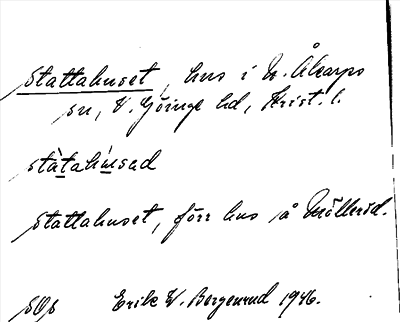 Stattahuset, hus i N. Åkarps
sn, V. Göinge hd, Krist. l.
stàtahúsad
Stattahuset, förr hus å Mölleröd.
SOs Erik W. Bergenrud 1946.